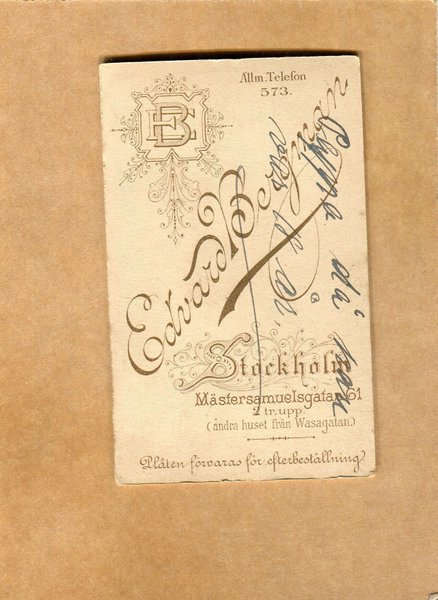 EB
Allm. Telefon
573.
Edvard Berg
Stockholm
Mästersamuelsgatan 61
2 tr. upp.
(andra huset från Wasagatan.)
Plåten förvaras för efterbeställning.
då han
var 18 år.